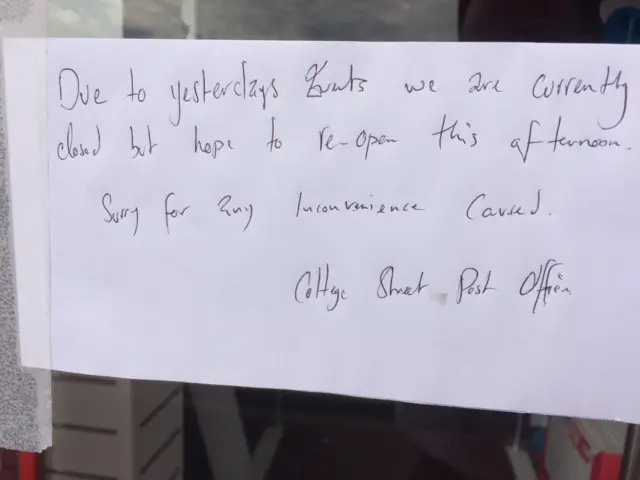 Due to yesterdays Events we are currently
closed but hope to re-open this afternoon.
Sorry for any Inconvenience Caused.
College Street Post Office